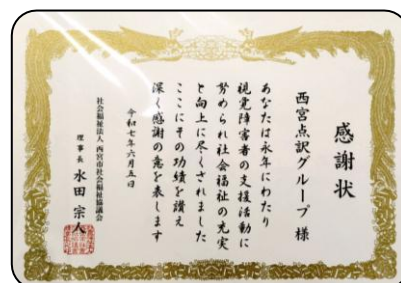 感謝状
西宮点訳グループ 様
あなたは永年にわたり
視覚障害者の支援活動に
努められ社会福祉の充実
と向上に尽くされました
ここにその功績を讃え
深く感謝の意を表します
令和七年六月五日
社会福祉法人 西宮市社会福祉協議会
理事長 水田 宗人